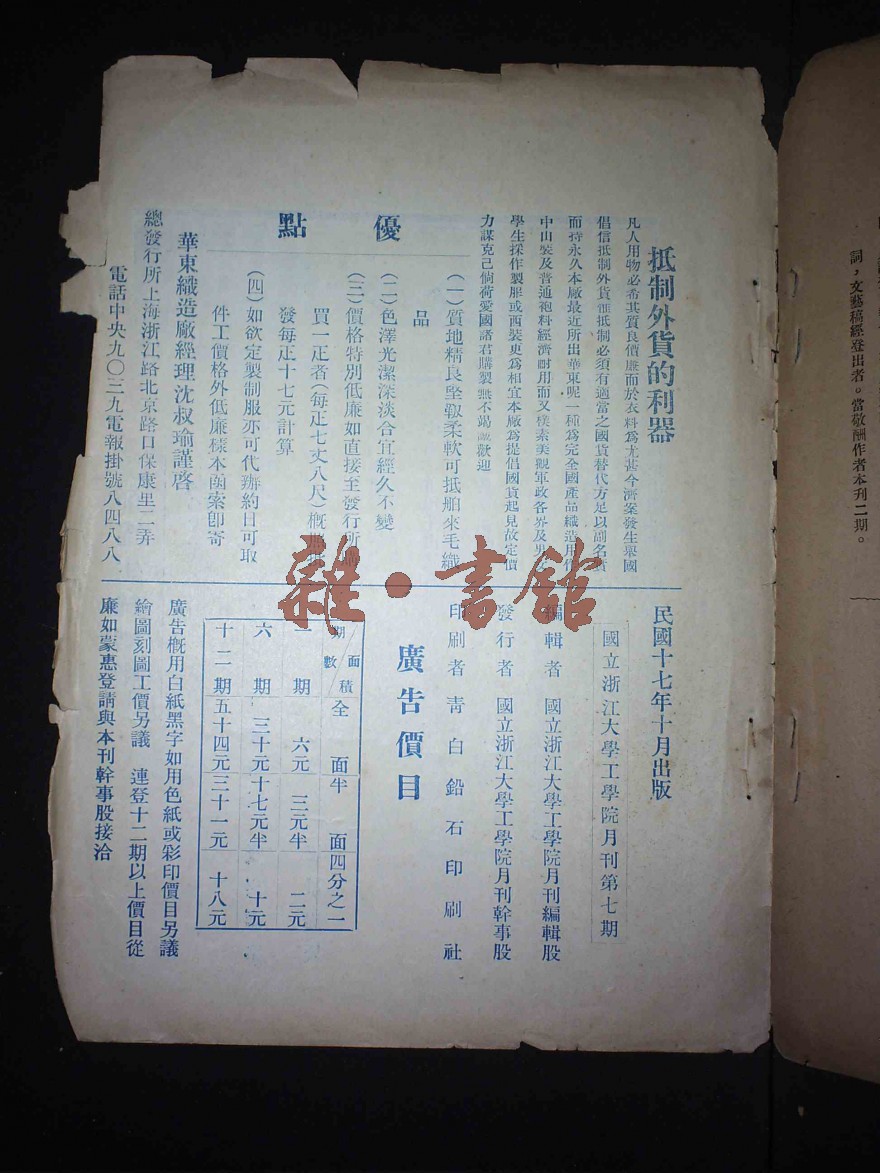 抵制外貨的利器
凡人用物必希其質良價廉而於衣料爲尤甚今濟案發生舉國
倡信抵制外貨惟抵制必須有適當之國貨替代方足以副名實
而持永久本廠最近所出華東呢一種爲完全國產品織造用作
中山裝及普通袍料經濟耐用而又樸素美觀軍政各界及男女
學生採作製服或西裝更爲相宜本廠爲提倡國貨起見故定價
力謀克己倘荷愛國諸君購製無不竭誠歡迎
優點
(一)質地精良堅靱柔軟可抵舶來毛織
品
(二)色澤光潔深淡合宜經久不變
(三)價格特別低廉如直接至發行所購
買一疋者(每疋七丈八尺)概照批
發每疋十七元計算
(四)如欲定製制服亦可代辦約日可取
件工價格外低廉樣本函索卽寄
華東織造廠經理沈叔瑜謹啓
總發行所上海浙江路北京路口保康里二弄
電話中央九〇三九電報掛號八四八八
民國十七年十月出版
國立浙江大學工學院月刊第七期
編輯者 國立浙江大學工學院月刊編輯股
發行者 國立浙江大學工學院月刊幹事股
印刷者 青白鉛石印刷社
廣告價目
期數 面積 全面 半面 四分之一
一期 六元 三元半 二元
六期 三十元 十七元半 十元
十二期 五十四元 三十一元 十八元
廣告概用白紙黑字如用色紙或彩印價目另議
繪圖刻圖工價另議 連登十二期以上價目從
廉如蒙惠登請與本刊幹事股接洽
詞,文藝稿經登出者。當敬酬作者本刊二期。
雜·書館